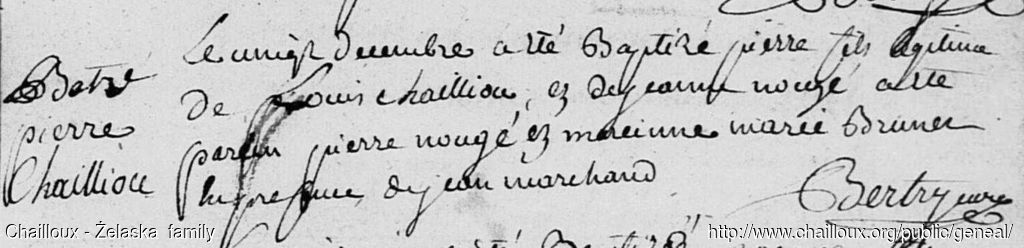 Batzé
pierre
Chailliou
Le vingt decembre a été Baptizé pierre fils legitime
de Louis chailliou, ez de jeanne nougé a été
parein pierre nougé ez mareinne marie Brunet
en presence de jean marchand
Bertry curé
été Baptizé
Chailloux - Żelaska family
http://www.chailloux.org/public/geneal/